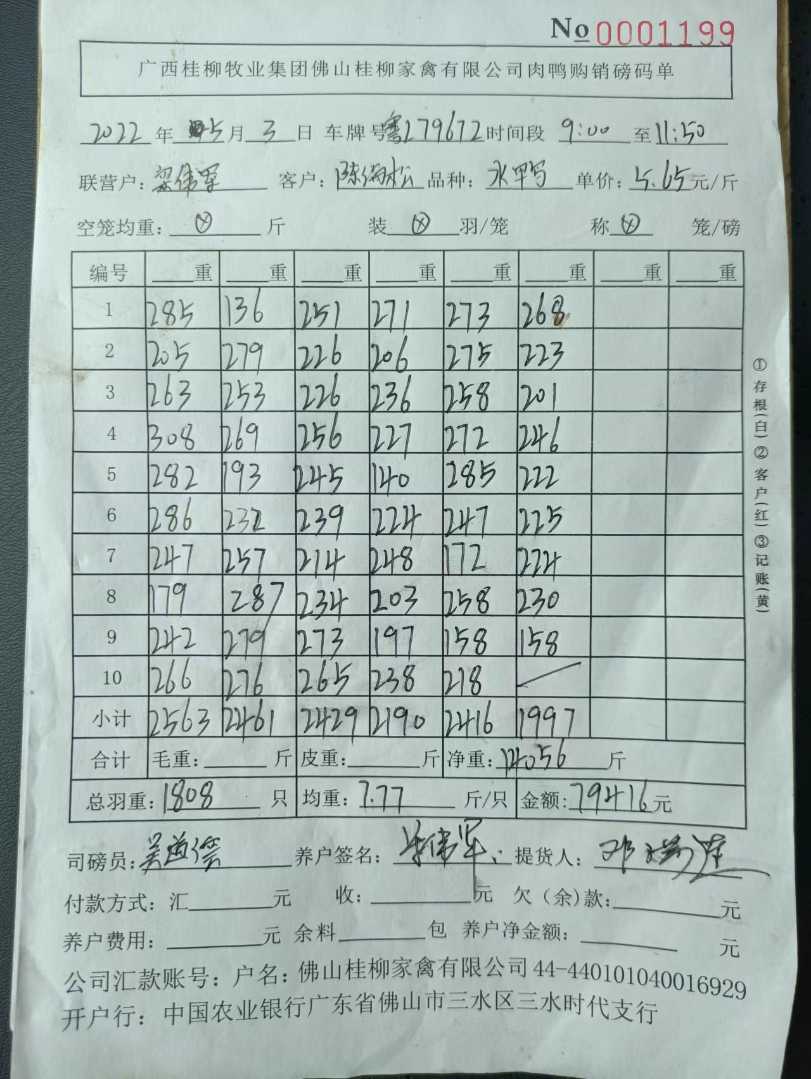 No 0001199
广西桂柳牧业集团佛山桂柳家禽有限公司肉鸭购销磅码单
2022年 5月 3日 车牌号粤279672时间段 9:00 至11:50
联营户: 客户: 品种: 水甲写 单价: 5.65元/斤
空笼均重: ⊗ 斤 装 ⊗ 羽/笼 称 ⊗ 笼/磅
编号 重 重 重 重 重 重 重 重
1 285 136 251 271 273 268
2 205 279 226 206 275 223
3 263 253 226 236 258 201
4 308 269 256 227 272 246
5 282 193 245 140 285 222
6 286 232 239 224 247 225
7 247 257 214 248 172 224
8 179 287 234 203 258 230
9 242 279 273 197 158 158
10 266 276 265 238 218
小计 2563 2461 2429 2190 2416 1997
合计 毛重: 斤 皮重: 斤 净重: 14056 斤
总羽重: 1808 只 均重: 7.77 斤/只 金额: 79416元
司磅员: 养户签名: 提货人:
付款方式: 汇 元 收: 元 欠(余)款: 元
养户费用: 元 余料 包 养户净金额: 元
公司汇款账号: 户名: 佛山桂柳家禽有限公司 44-440101040016929
开户行: 中国农业银行广东省佛山市三水区三水时代支行
①存根(白)②客户(红)③记账(黄)